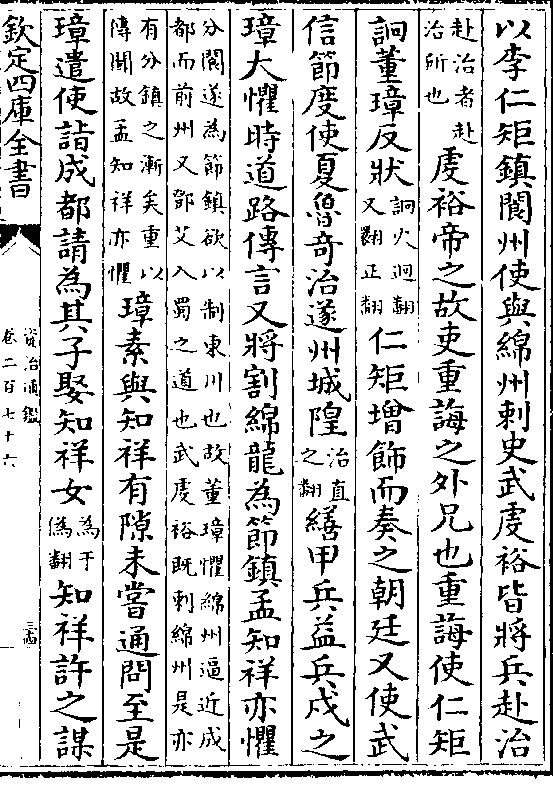 以李仁矩鎮閬州使與綿州刺史武虔裕皆將兵赴治
赴治者赴
治所也
虔裕帝之故吏重誨之外兄也重誨使仁矩
詗董璋反狀
詗火迥翻
又翾正翻
仁矩增飾而奏之朝廷又使武
信節度使夏魯奇治遂州城隍
治直
之翻
繕甲兵益兵戍之
璋大懼時道路傳言又將割綿龍為節鎮孟知祥亦懼
分閬遂為節鎮欲以制東川也故董璋懼綿州逼近成
都而前州又鄧艾入蜀之道也武虔裕既刺綿州是亦
有分鎮之漸矣重以
傳聞故孟知祥亦懼
璋素與知祥有隙未嘗通問至是
璋遣使詣成都請為其子娶知祥女
為于
偽翻
知祥許之謀
欽定四庫全書
資治通鑑
卷二百七十六